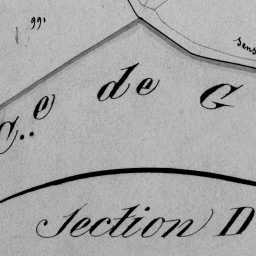 991
Sens
C.^e de G
Section D